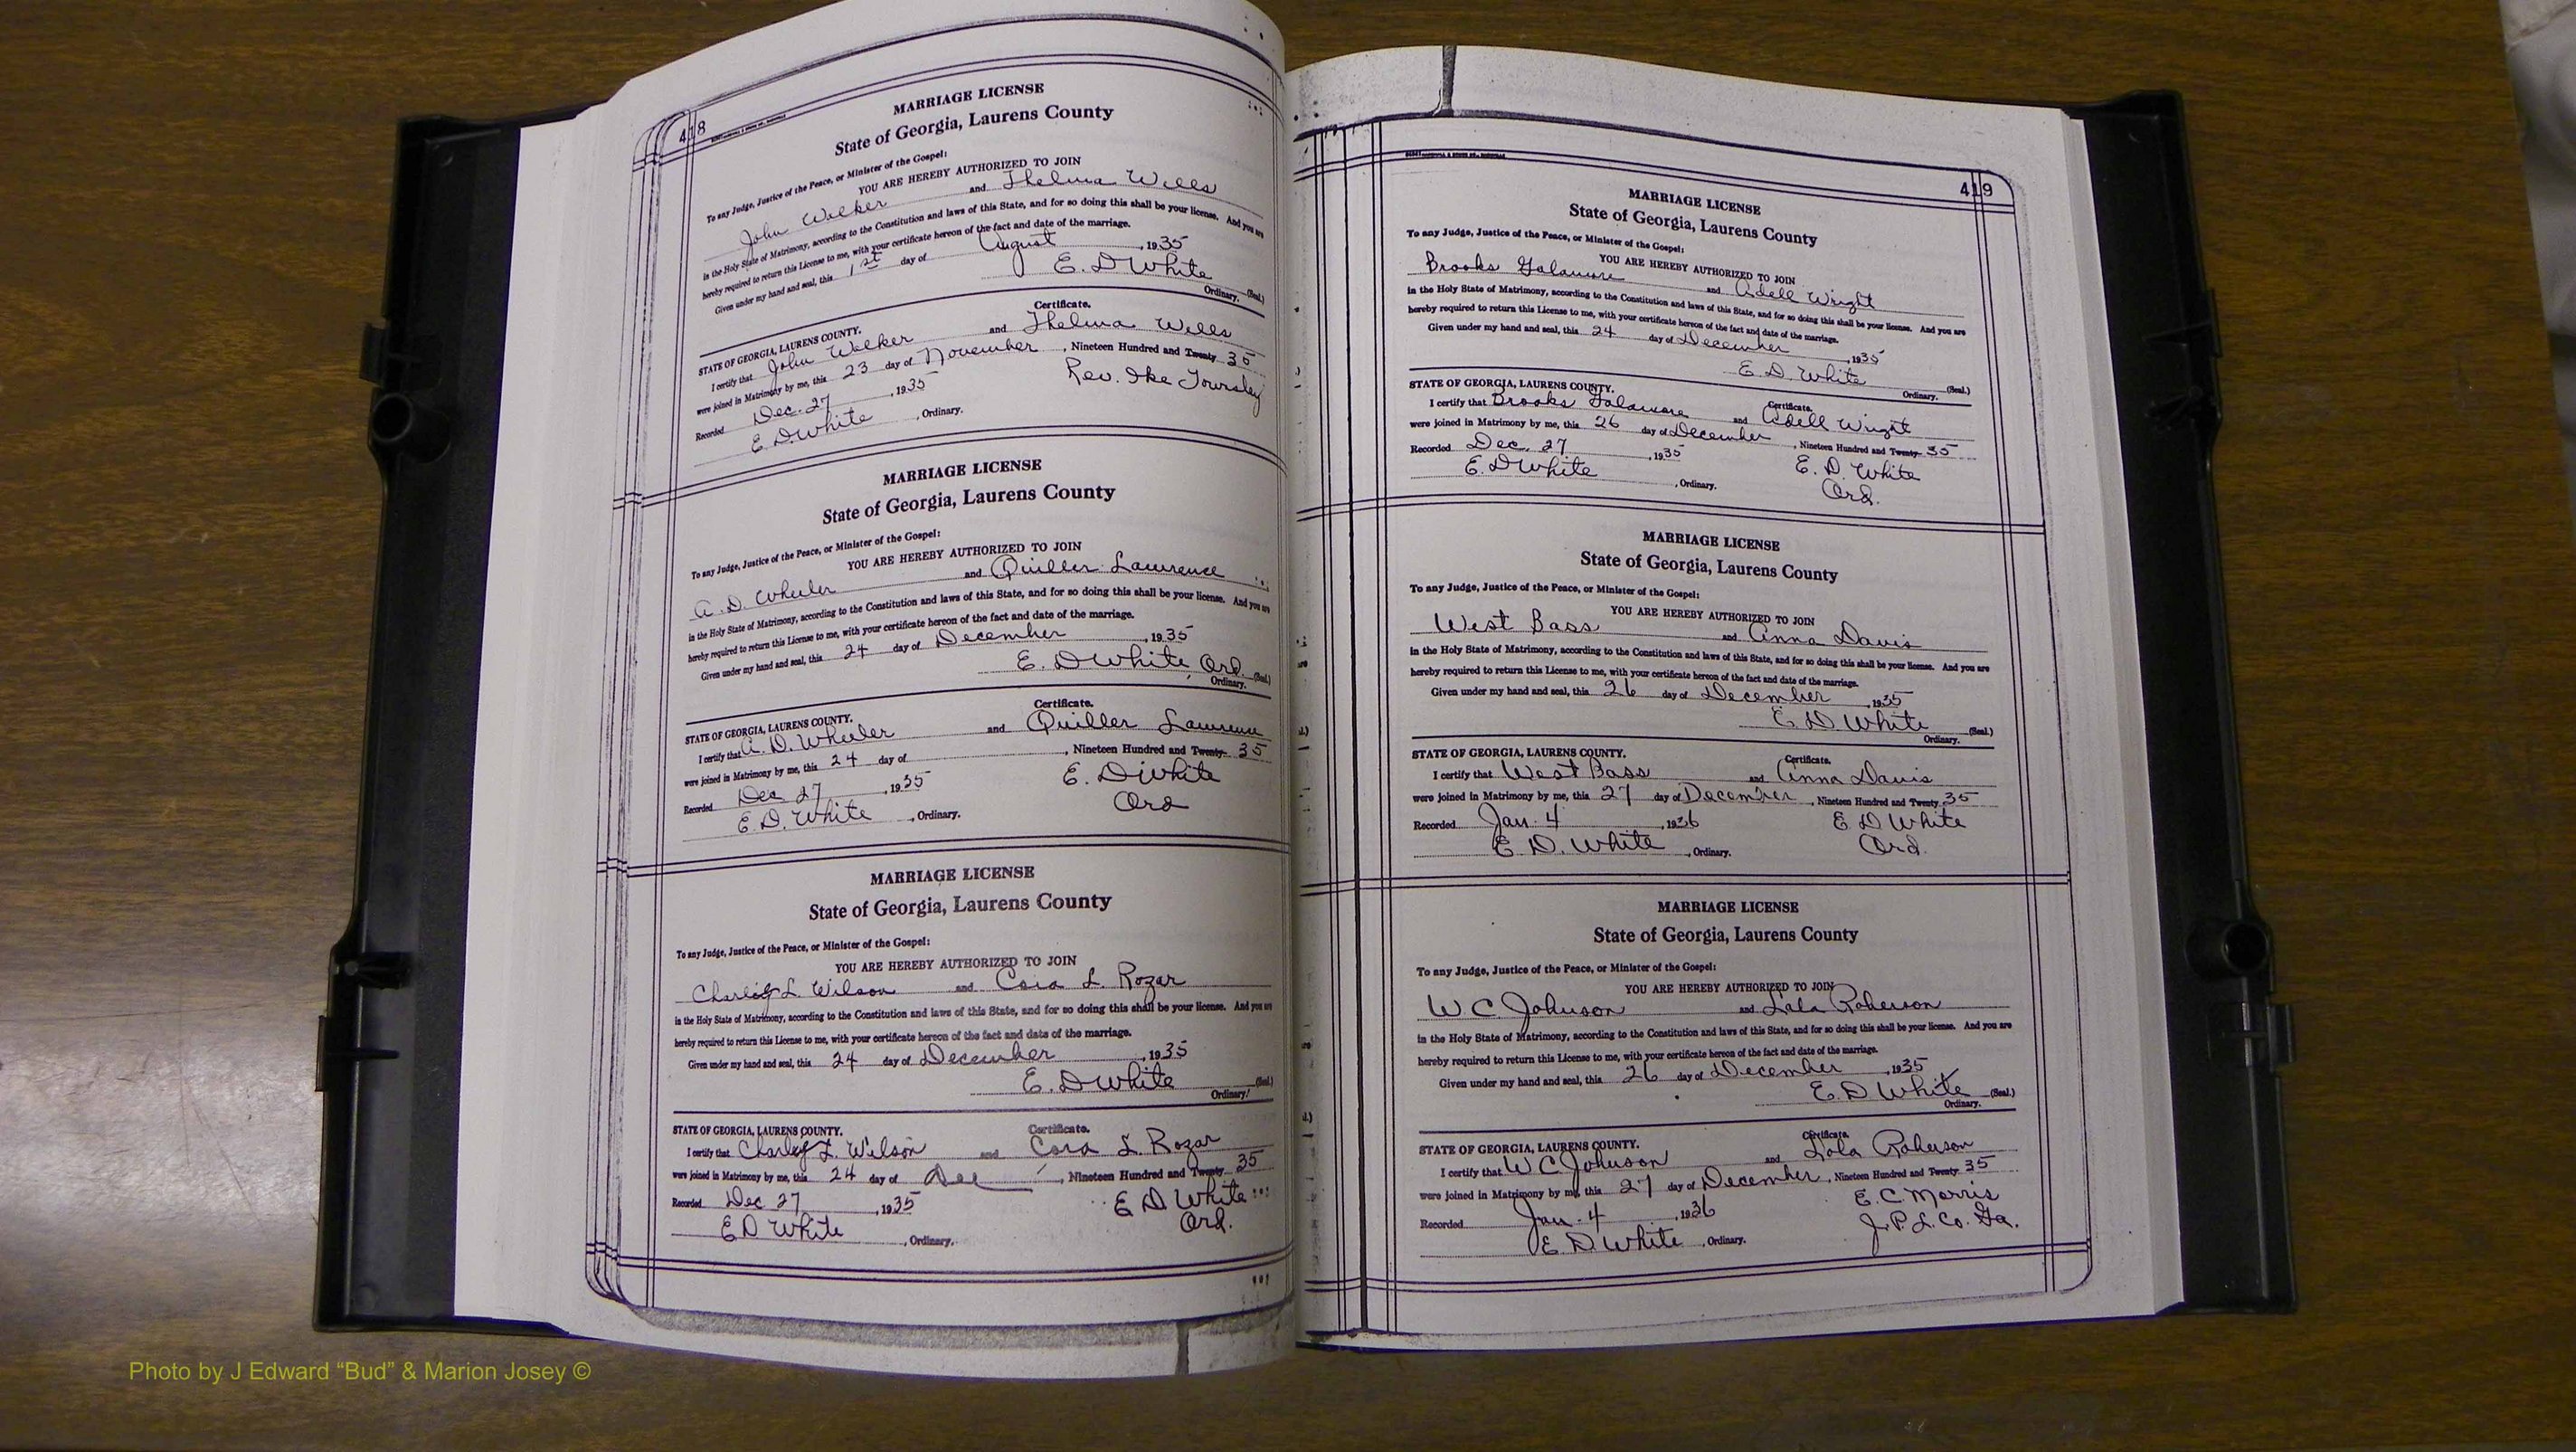 418
MARRIAGE LICENSE
State of Georgia, Laurens County
To any Judge, Justice of the Peace, or Minister of the Gospel:
YOU ARE HEREBY AUTHORIZED TO JOIN
John Walker and Thelma Wells
in the Holy State of Matrimony, according to the Constitution and laws of this State, and for so doing this shall be your license. And you are
hereby required to return this License to me, with your certificate hereon of the fact and date of the marriage.
Given under my hand and seal, this 1st day of August, 1935
E. D White (Seal.)
Ordinary.
Certificate.
STATE OF GEORGIA, LAURENS COUNTY.
I certify that John Walker and Thelma Wells
were joined in Matrimony by me, this 23 day of November, Nineteen Hundred and Twenty 35
Recorded Dec. 27, 1935 Rev. Ike Towrsley
E. D. White, Ordinary.
MARRIAGE LICENSE
State of Georgia, Laurens County
To any Judge, Justice of the Peace, or Minister of the Gospel:
YOU ARE HEREBY AUTHORIZED TO JOIN
A. D. Wheeler and Quiller Lawrence
in the Holy State of Matrimony, according to the Constitution and laws of this State, and for so doing this shall be your license. And you are
hereby required to return this License to me, with your certificate hereon of the fact and date of the marriage.
Given under my hand and seal, this 24 day of December, 1935
E. D White Ord. (Seal.)
Ordinary.
Certificate.
STATE OF GEORGIA, LAURENS COUNTY.
I certify that A. D. Wheeler and Quiller Lawrence
were joined in Matrimony by me, this 24 day of , Nineteen Hundred and Twenty 35
Recorded Dec 27, 1935 E. D White
E. D. White, Ordinary. Ord
MARRIAGE LICENSE
State of Georgia, Laurens County
To any Judge, Justice of the Peace, or Minister of the Gospel:
YOU ARE HEREBY AUTHORIZED TO JOIN
Charley L. Wilson and Cora L. Rozar
in the Holy State of Matrimony, according to the Constitution and laws of this State, and for so doing this shall be your license. And you are
hereby required to return this License to me, with your certificate hereon of the fact and date of the marriage.
Given under my hand and seal, this 24 day of December, 1935
E. D White (Seal.)
Ordinary.
Certificate.
STATE OF GEORGIA, LAURENS COUNTY.
I certify that Charley L. Wilson and Cora L. Rozar
were joined in Matrimony by me, this 24 day of Dec, Nineteen Hundred and Twenty 35
Recorded Dec 27, 1935 E D White
E D White, Ordinary. Ord.
419
MARRIAGE LICENSE
State of Georgia, Laurens County
To any Judge, Justice of the Peace, or Minister of the Gospel:
YOU ARE HEREBY AUTHORIZED TO JOIN
Brooks Galamore and Adell Wright
in the Holy State of Matrimony, according to the Constitution and laws of this State, and for so doing this shall be your license. And you are
hereby required to return this License to me, with your certificate hereon of the fact and date of the marriage.
Given under my hand and seal, this 24 day of December, 1935
E. D. White (Seal.)
Ordinary.
Certificate.
STATE OF GEORGIA, LAURENS COUNTY.
I certify that Brooks Galamore and Adell Wright
were joined in Matrimony by me, this 26 day of December, Nineteen Hundred and Twenty 35
Recorded Dec. 27, 1935 E. D. White
E. D White, Ordinary. Ord.
MARRIAGE LICENSE
State of Georgia, Laurens County
To any Judge, Justice of the Peace, or Minister of the Gospel:
YOU ARE HEREBY AUTHORIZED TO JOIN
West Bass and Anna Davis
in the Holy State of Matrimony, according to the Constitution and laws of this State, and for so doing this shall be your license. And you are
hereby required to return this License to me, with your certificate hereon of the fact and date of the marriage.
Given under my hand and seal, this 26 day of December, 1935
E. D. White (Seal.)
Ordinary.
Certificate.
STATE OF GEORGIA, LAURENS COUNTY.
I certify that West Bass and Anna Davis
were joined in Matrimony by me, this 27 day of December, Nineteen Hundred and Twenty 35
Recorded Jan. 4, 1936 E D White
E D. White, Ordinary. Ord.
MARRIAGE LICENSE
State of Georgia, Laurens County
To any Judge, Justice of the Peace, or Minister of the Gospel:
YOU ARE HEREBY AUTHORIZED TO JOIN
W C Johnson and Lula Roberson
in the Holy State of Matrimony, according to the Constitution and laws of this State, and for so doing this shall be your license. And you are
hereby required to return this License to me, with your certificate hereon of the fact and date of the marriage.
Given under my hand and seal, this 26 day of December, 1935
E. D White (Seal.)
Ordinary.
Certificate.
STATE OF GEORGIA, LAURENS COUNTY.
I certify that W C Johnson and Lola Roberson
were joined in Matrimony by me, this 27 day of December, Nineteen Hundred and Twenty 35
Recorded Jan. 4, 1936 E. C. Morris
E D. White, Ordinary. J. P. L. Co. Ga.
Photo by J Edward “Bud” & Marion Josey ©